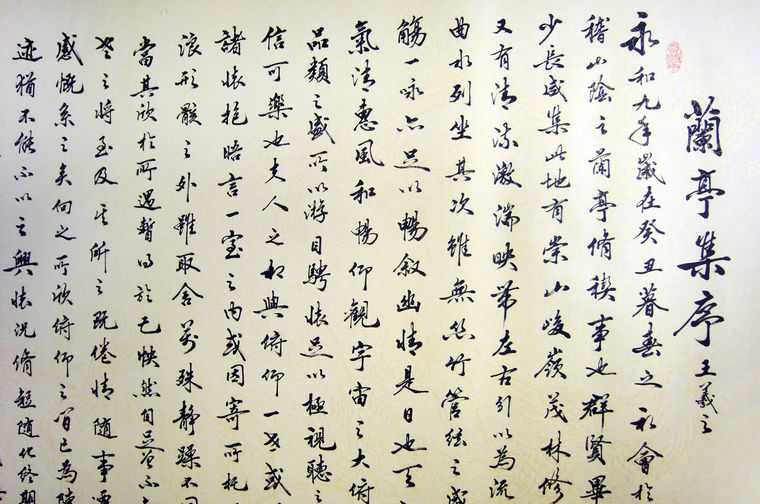 蘭亭集序 王羲之
永和九年歲在癸丑暮春之初會於
稽山陰之蘭亭脩禊事也群賢畢
少長咸集此地有崇山峻嶺茂林修
又有清流激湍映帶左右引以為流
曲水列坐其次雖無絲竹管絃之盛
觴一詠亦足以暢敘幽情是日也天
氣清惠風和暢仰觀宇宙之大俯
品類之盛所以游目騁懷足以極視聽之
信可樂也夫人之相與俯仰一世或
諸懷抱晤言一室之內或因寄所托
浪形骸之外雖取舍萬殊靜躁不同
當其欣於所遇暫得於己怏然自足曾不
老之將至及其所之既倦情隨事遷
感慨系之矣向之所欣俯仰之間已為陳
迹猶不能不以之興懷況脩短隨化終期